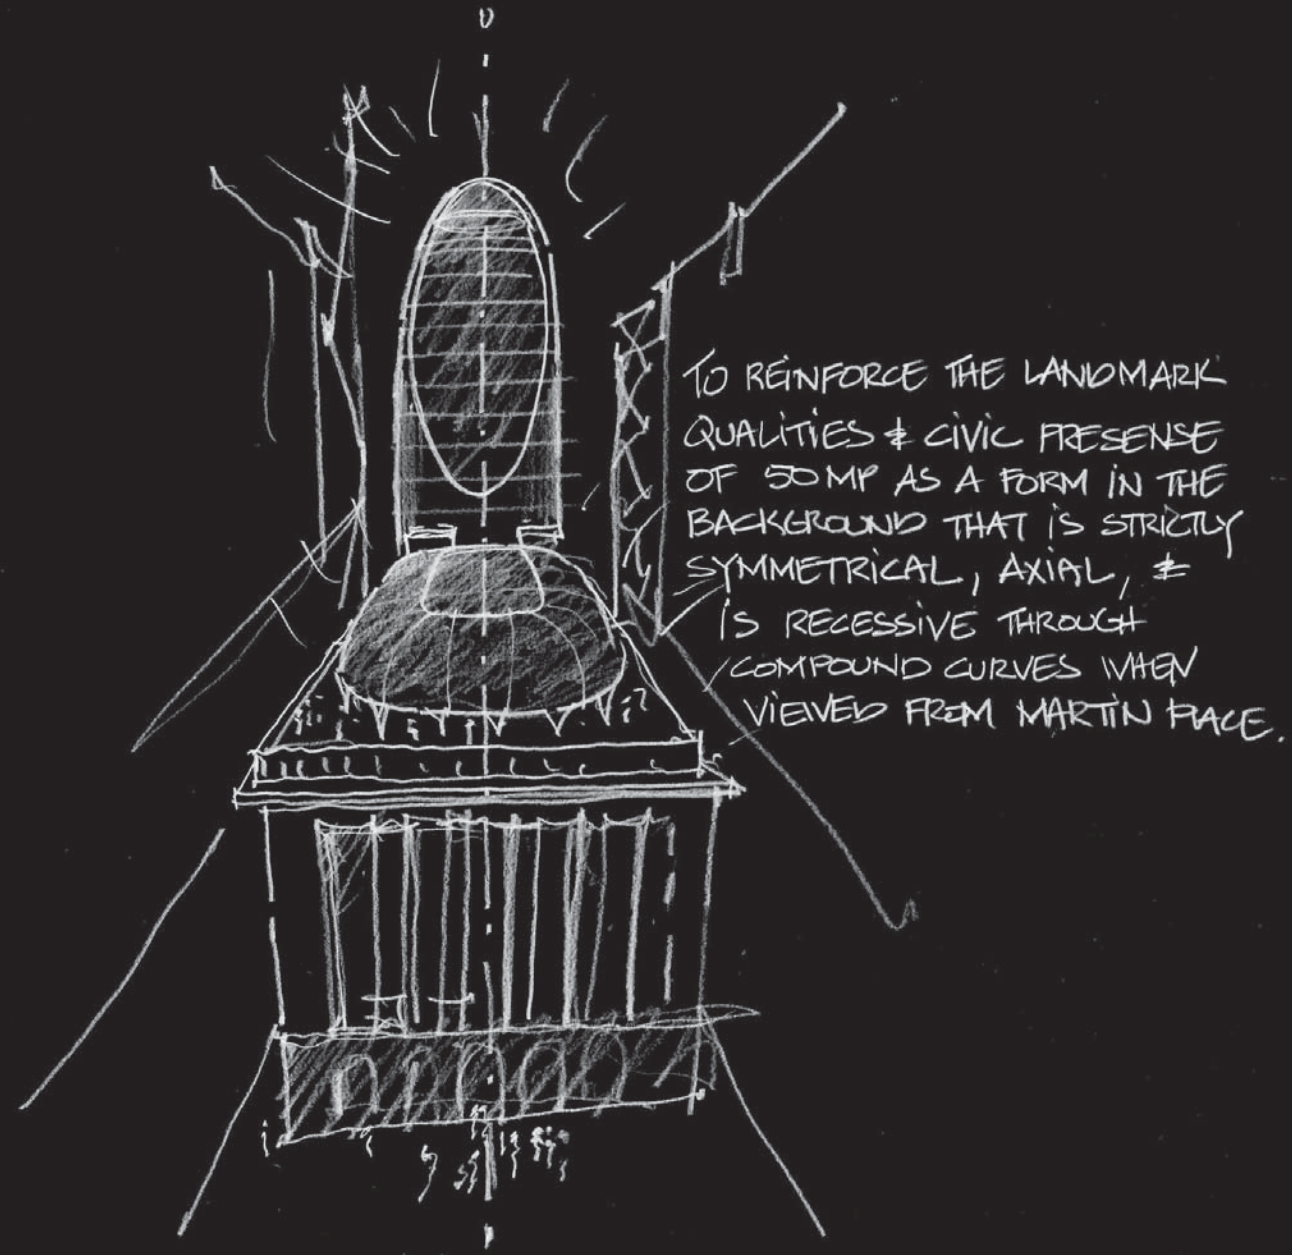 TO REINFORCE THE LANDMARK
QUALITIES & CIVIC PRESENSE
OF 50MP AS A FORM IN THE
BACKGROUND THAT IS STRICTLY
SYMMETRICAL, AXIAL, &
IS RECESSIVE THROUGH
COMPOUND CURVES WHEN
VIEWED FROM MARTIN PLACE.